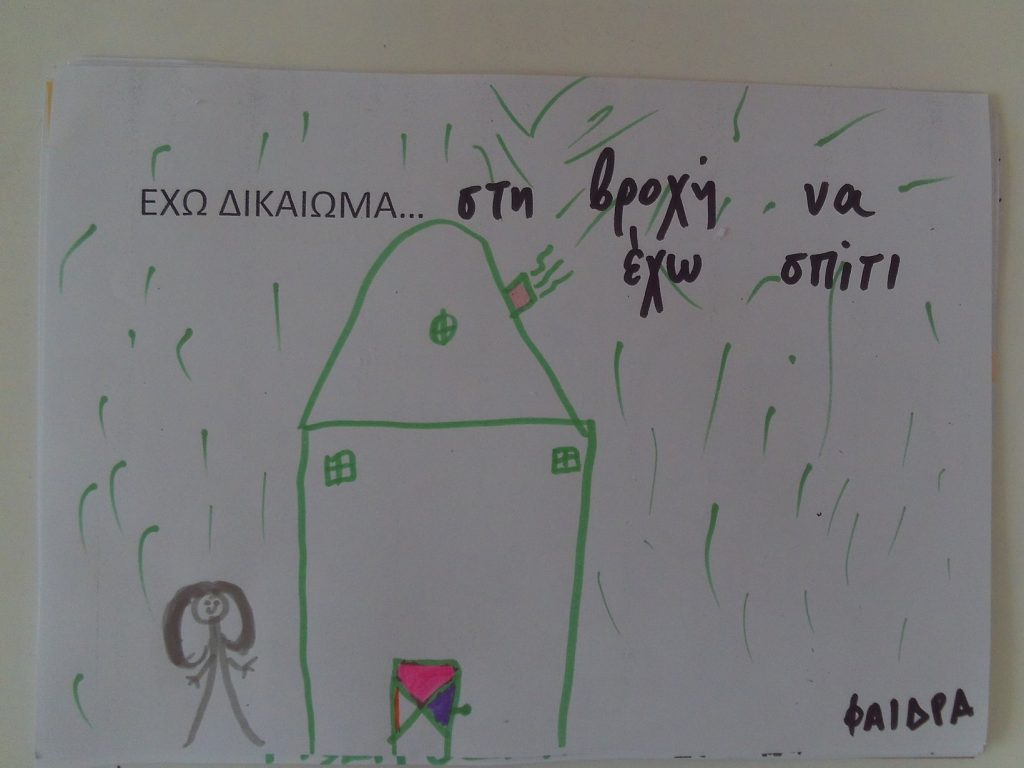 ΕΧΩ ΔΙΚΑΙΩΜΑ... στη βροχή να
έχω σπίτι
ΦΑΙΔΡΑ